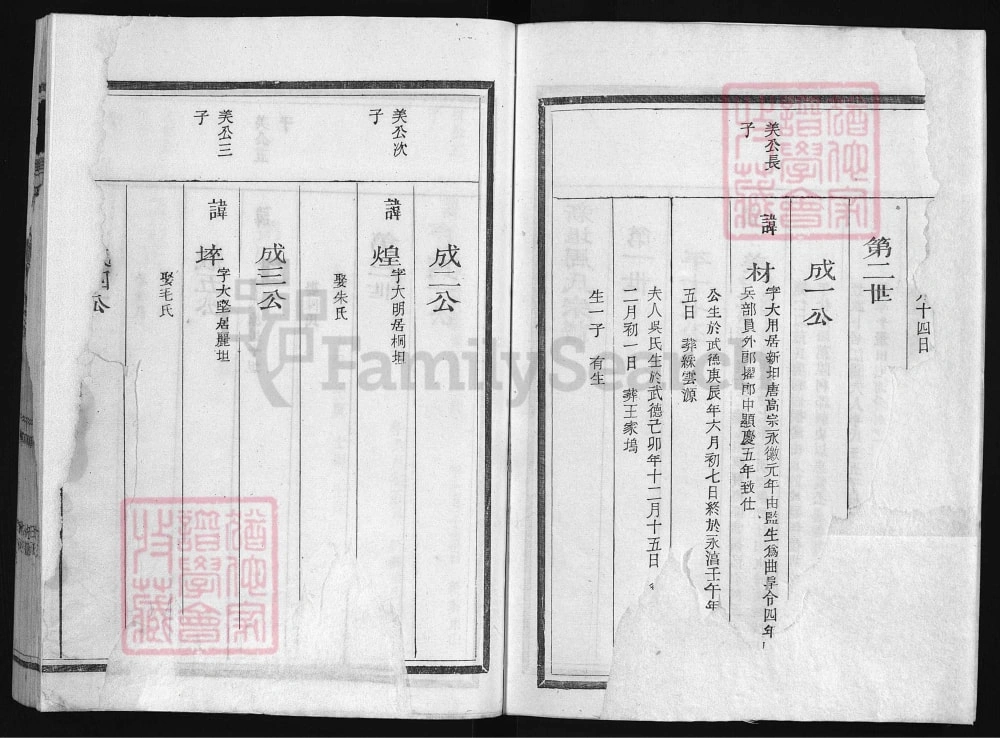 十四日
第二世
成一公
美公長
子
諱 材
字大用居新坦唐高宗永徽元年由監生為曲阜令四年
兵部員外郎擢郎中顯慶五年致仕
公生於武德庚辰年六月初七日終於永淳壬午年
五日 葬綵雲源
夫人吳氏生於武德己卯年十二月十五日
二月初一日 葬王家塢
生一子 有生
成二公
美公次
子
諱 煌
字大明居桐坦
娶朱氏
成三公
美公三
子
諱 埣
字大堅居麗坦
娶毛氏
公
譜學會
收藏
FamilySearch